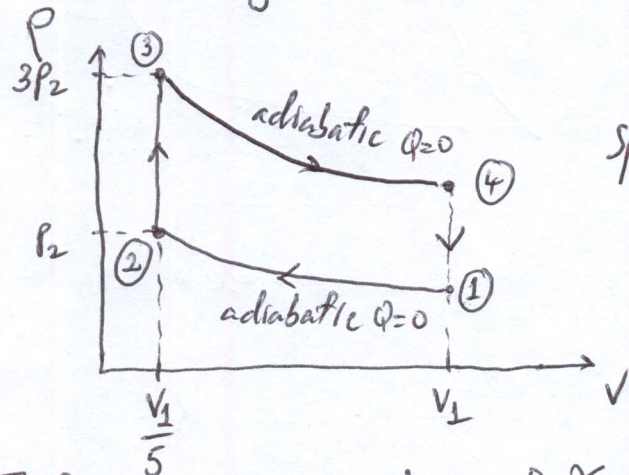 P
③
3P₂
adiabatic Q=0
④
P₂
②
①
adiabatic Q=0
V₁/5
V₁
V